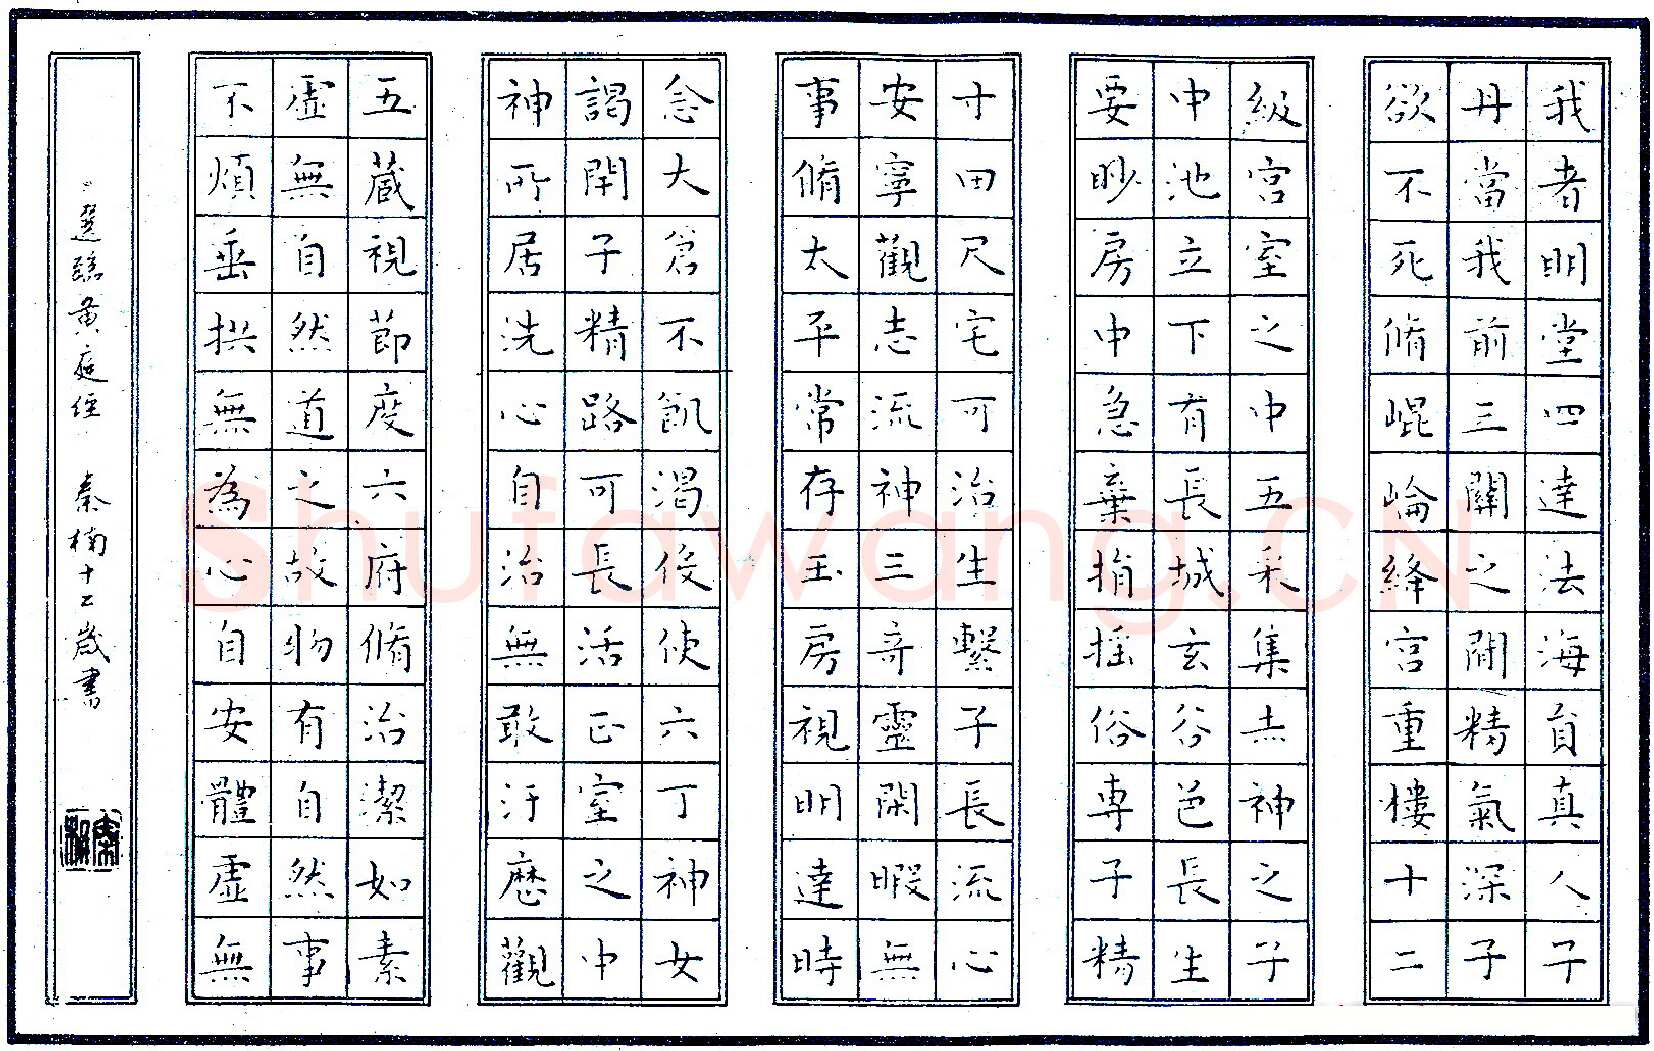 我者明堂四達法海員真人子
丹當我前三關之間精氣深子
欲不死脩崐崘絳宮重樓十二
級宮室之中五采集赤神之子
中池立下有長城玄谷邑長生
要眇房中急棄捐搖俗專子精
寸田尺宅可治生繫子長流心
安寧觀志流神三奇靈閑暇無
事脩太平常存玉房視明達時
念大倉不飢渴役使六丁神女
謁閉子精路可長活正室之中
神所居洗心自治無敢汙歷觀
五藏視節度六府脩治潔如素
虛無自然道之故物有自然事
不煩垂拱無為心自安體虛無
選臨黃庭經 秦楠十二歲書
Shufawang.CN